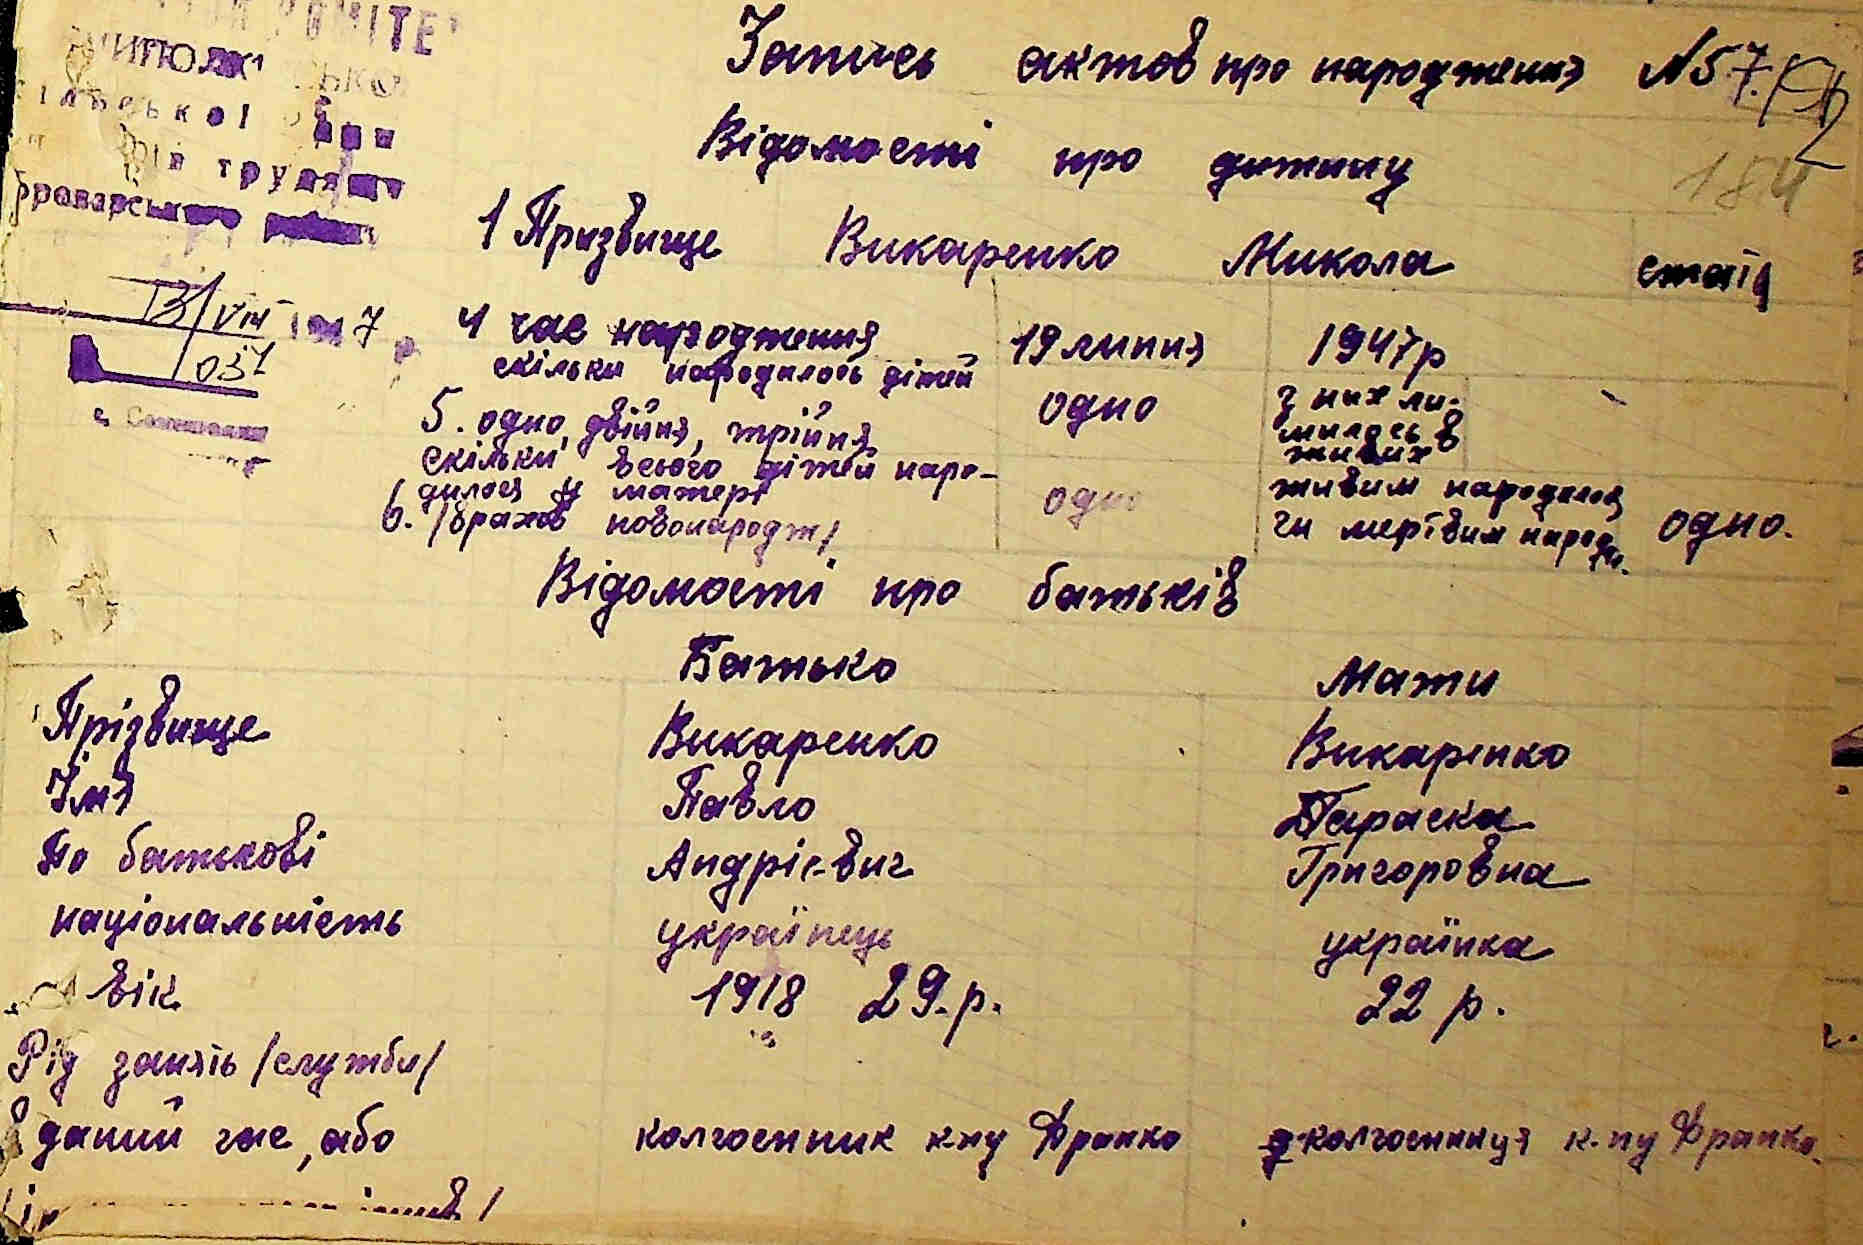 КОМІТЕ
ської
трудящ
броварськ
13/VIII 1947
031
Запись актов про народження №57.
Відомості про дитину
184
1 Призвище Викаренко Микола стать
4 час народження 19 липня 1947р
скільки народилось дітей
5. одно, двійня, трійня одно з них ли-
милось в
живих
скільки всього дітей наро-
дилося у матері одно живим народилося
6. /врахов новонародж/ чи мертвим народж. одно.
Відомості про батьків
Батько Мати
Прізвище Викаренко Викаренко
Імя Павло Параска
По батькові Андрієвич Григоровна
національність українець українка
вік 1918 29.р. 22 р.
Рід занять /служби/
В даний час, або колгосник к-пу Франко колгосниця к-пу Франко.